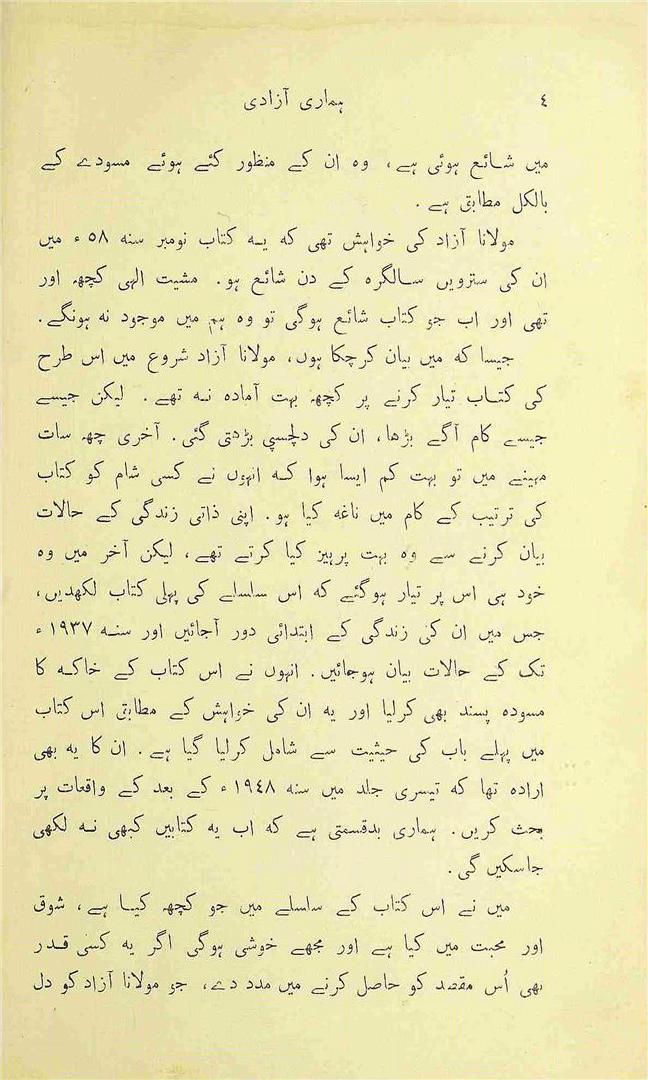 ٤ ہماری آزادی
میں شائع ہوئی ہے، وہ ان کے منظور کئے ہوئے مسودے کے
بالکل مطابق ہے .
مولانا آزاد کی خواہش تھی کہ یہ کتاب نومبر سنہ ٥٨ ء میں
ان کی سترویں سالگرہ کے دن شائع ہو. مشیت الٰہی کچھ اور
تھی اور اب جو کتاب شائع ہوگی تو وہ ہم میں موجود نہ ہونگے.
جیسا کہ میں بیان کرچکا ہوں، مولانا آزاد شروع میں اس طرح
کی کتاب تیار کرنے پر کچھ بہت آمادہ نہ تھے. لیکن جیسے
جیسے کام آگے بڑھا، ان کی دلچسپی بڑھتی گئی. آخری چھ سات
مہینے میں تو بہت کم ایسا ہوا کہ انہوں نے کسی شام کو کتاب
کی ترتیب کے کام میں ناغہ کیا ہو. اپنی ذاتی زندگی کے حالات
بیان کرنے سے وہ بہت پرہیز کیا کرتے تھے، لیکن آخر میں وہ
خود ہی اس پر تیار ہوگئے کہ اس سلسلے کی پہلی کتاب لکھدیں،
جس میں ان کی زندگی کے ابتدائی دور آجائیں اور سنہ ١٩٣٧ ء
تک کے حالات بیان ہوجائیں. انہوں نے اس کتاب کے خاکہ کا
مسودہ پسند بھی کرلیا اور یہ ان کی خواہش کے مطابق اس کتاب
میں پہلے باب کی حیثیت سے شامل کرلیا گیا ہے. ان کا یہ بھی
ارادہ تھا کہ تیسری جلد میں سنہ ١٩٤٨ ء کے بعد کے واقعات پر
بحث کریں. ہماری بدقسمتی ہے کہ اب یہ کتابیں کبھی نہ لکھی
جاسکیں گی.
میں نے اس کتاب کے سلسلے میں جو کچھ کیا ہے، شوق
اور محبت میں کیا ہے اور مجھے خوشی ہوگی اگر یہ کسی قدر
بھی اُس مقصد کو حاصل کرنے میں مدد دے، جو مولانا آزاد کو دل